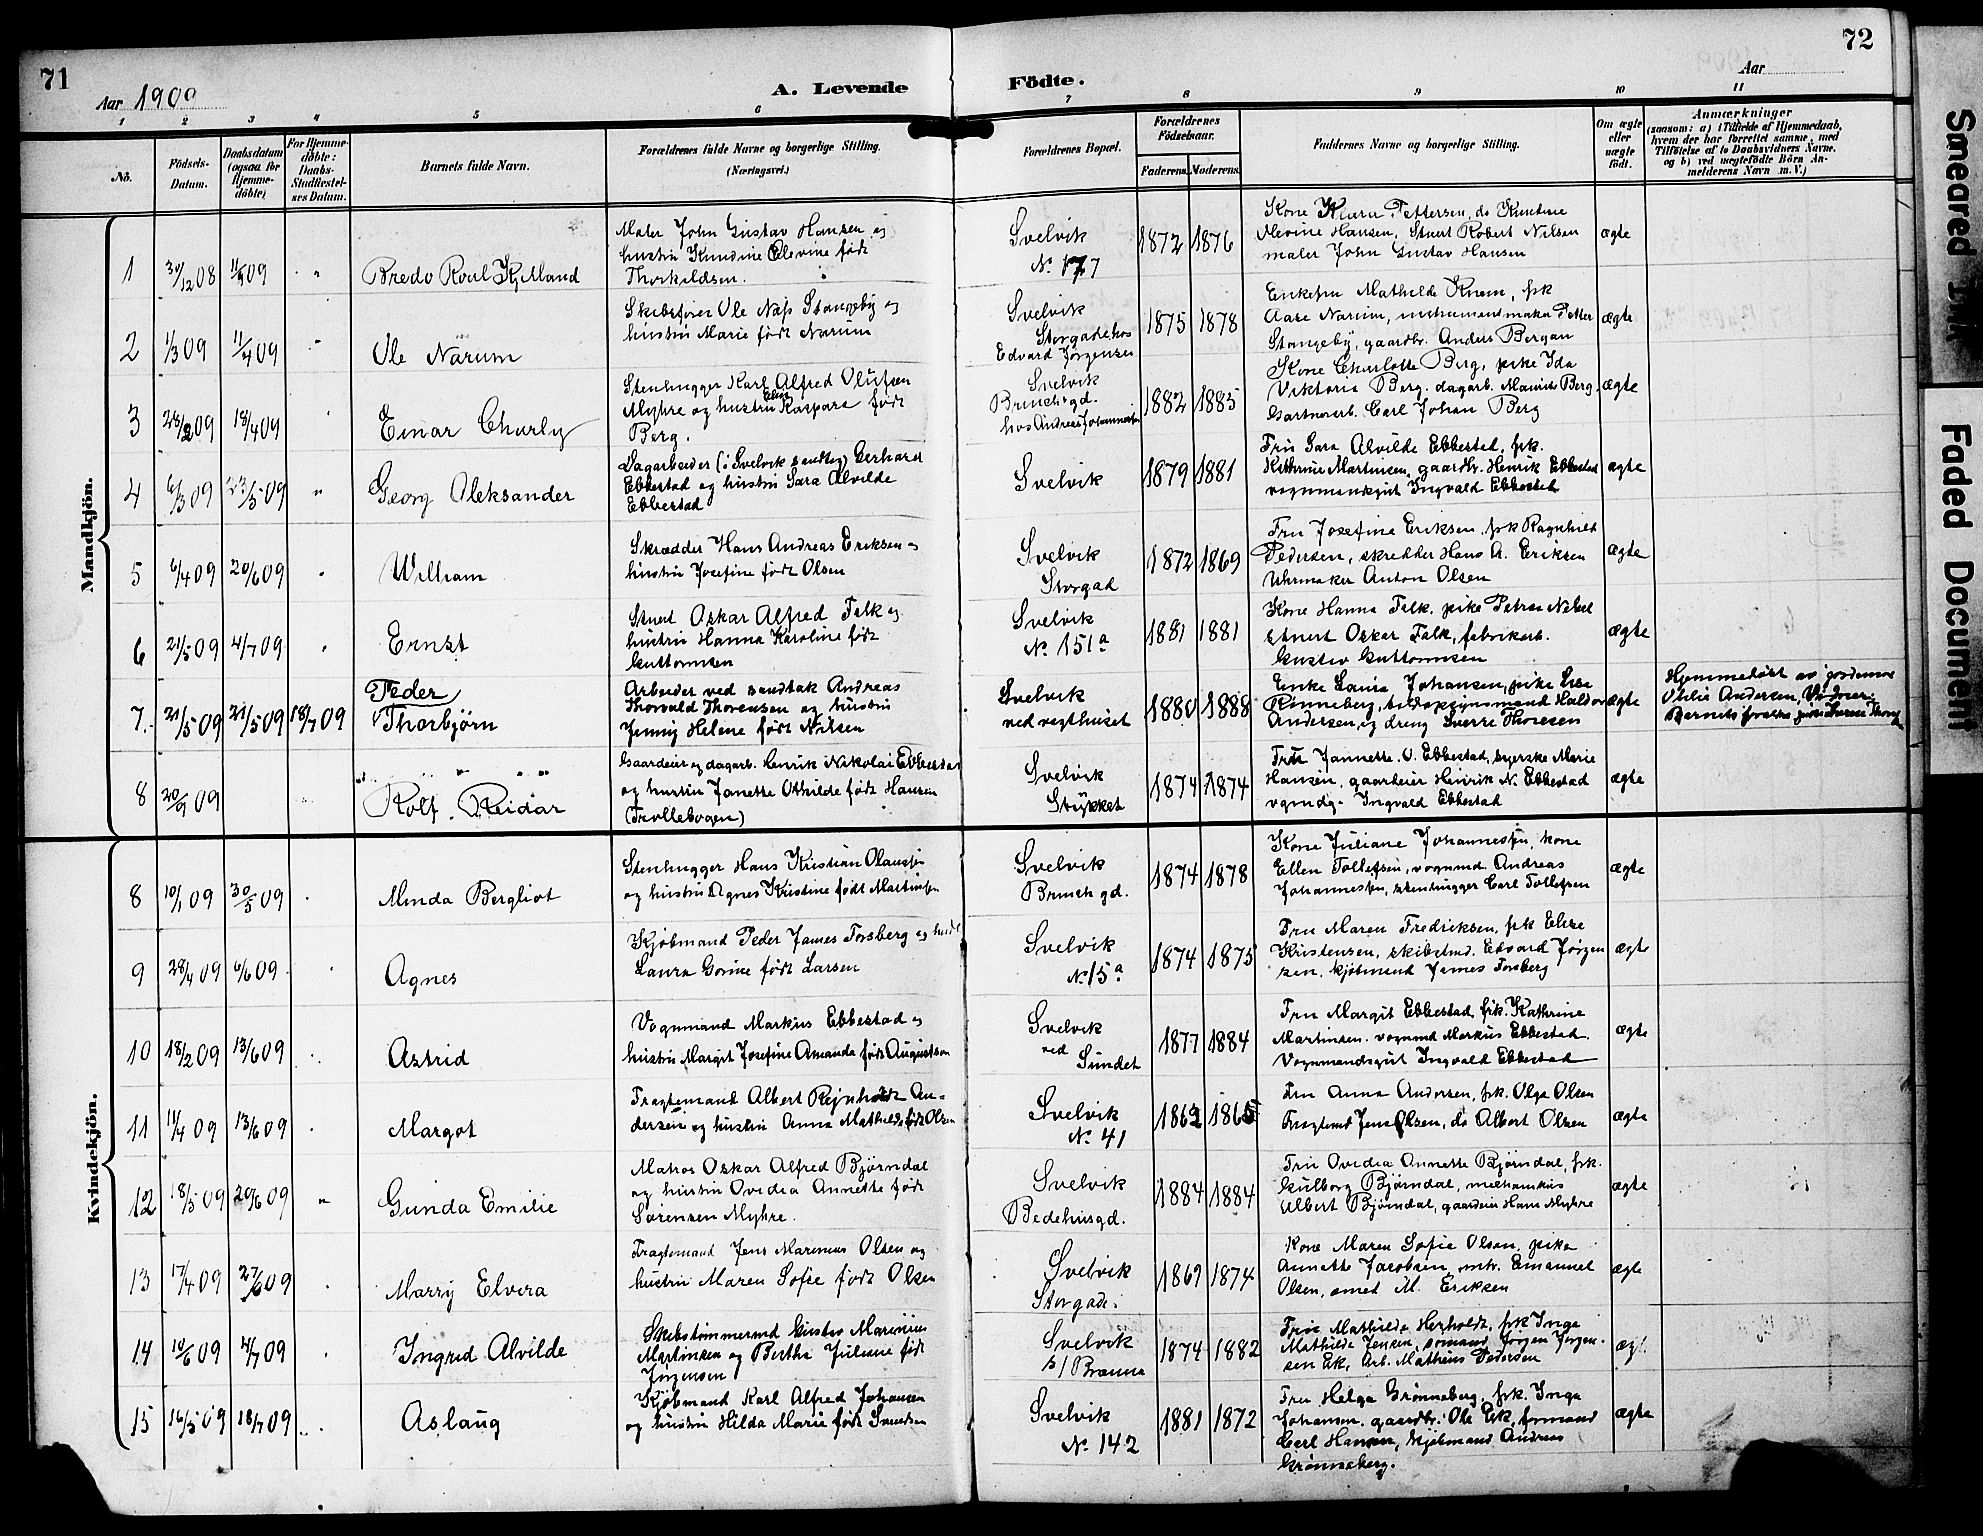 71
72
Aar 1909
A. Levende
Födte.
Aar
1 2 3 4 5 6 7 8 9 10 11
No.
Födsels-
Datum.
Daabsdatum
(ogsaa for
Hjemme-
döbte)
For Hjemme-
döbte:
Daabs-
Stadfæstel-
ses Datum.
Barnets fulde Navn.
Forældrenes fulde Navne og borgerlige Stilling.
(Næringsvei.)
Forældrenes Bopæl.
Forældrenes
Födselsaar.
Faderens. Moderens.
Faddernes Navne og borgerlige Stilling.
Om ægte
eller
uægte
født.
Anmærkninger
(saasom: a) i Tilfælde af Hjemmedaab,
hvem der har forrettet samme, med
Tilföielse af to Daabsvidners Navne,
og b) ved uægtefødte Börn An-
melderens Navn m. V.)
Mandkjön.
1 30/12 08
Bredo Roul Kjelland
Maler John Gustav Hansen og
hustru Kundine Elevine født
Thorkildsen.
Svelvik
No. 177
1872 1876
Kone Klara Pettersen, do Kundine
Elevine Hansen, Stuert Robert Nilsen
maler John Gustav Hansen
ægte
2 1/3 09 11/4 09
Ole Narum
Skibsfører Ole Næss Stangeby og
hustru Marie født Narum
Svelvik
Storgade hos
Edvard Jørgensen
1875 1878
Enkefru Mathilde Knem, frk
Aase Narum, instrumentmaker Petter
Stangeby, gaardbr. Anders Bergan
ægte
3 28/2 09 18/4 09
Einar Charly
Stenhugger Karl Alfred Olufsen
Myhre og hustru Elise Kaspara født
Berg.
Svelvik
Bruchsgd.
hos Andreas Johannessen
1882 1885
Kone Charlotte Berg, pike Ida
Viktoria Berg. dagarb. Mauritz Berg,
Gartnerarb. Carl Johan Berg
ægte
4 6/3 09 23/5 09
Georg Aleksander
Dagarbeider (i Svelvik sandtag) Gerhard
Ebbestad og hustru Sara Alvilde
Ebbestad
Svelvik
1879 1881
Fru Sara Alvilde Ebbestad, frk.
Kathrine Martinsen, gaardbr. Henrik Ebbestad
vognmandsgut Ingvald Ebbestad
ægte
5 6/4 09 20/6 09
William
Skrædder Hans Andreas Eriksen og
hustru Josefine født Olsen
Svelvik
Storgad
1872 1869
Fru Josefine Eriksen, frk Ragnhild
Pedersen, skredder Hans A. Eriksen
Uhrmaker Anton Olsen
ægte
6 21/5 09 4/7 09
Ernst
Stuert Oskar Alfred Falk og
hustru Hanna Karoline født
Guttormsen
Svelvik
No. 151a
1881 1881
Kone Hanna Falk, pike Petra
Stuert Oskar Falk, fabrikarb.
Gustav Guttormsen
ægte
7. 21/5 09 21/5 09 18/7 09
Peder
Thorbjörn
Arbeider ved sandtak Andreas
Thorvald Thorensen og hustru
Jenny Helene født Nilsen
Svelvik
ved vegthuset
1880 1888
Enke Laura Johansen, pike
Rønneberg, tilsynsmand Haldor
Andersen, og dreng Sverre Thoresen
ægte
Hjemmedöbt av jordemor
Othilie Andersen, Vidner:
Barnets forældre
8 20/9 09
Rolf Reidar
Gaardeier og dagarb. Henrik Nikolai Ebbestad
og hustru Janette Othilde født Hansen
(Trollebogen)
Svelvik
Stykket
1874 1874
Fru Jannette O. Ebbestad, syerske Marie
Hansen, gaardeier Hinrik N. Ebbestad
vgmdg. Ingvald Ebbestad
ægte
Kvindekjön.
8 10/1 09 30/5 09
Minda Bergliot
Stenhugger Hans Kristian Olaussen
og hustru Agnes Kristine født Martinsen
Svelvik
Bruchgd.
1874 1878
Kone Juliane Johannessen, kone
Ellen Tollefsen, vognmd Andreas
Johannessen, stenhugger Carl Tollefsen
ægte
9 28/4 09 6/6 09
Agnes
Kjøbmand Peder James Forsberg og hust
Laura Gorine født Larsen
Svelvik
No 15a
1874 1875
Fru Maren Fredriksen, frk Elise
Kristensen, skibstmd. Edvard Jørgen
sen, kjøbmand James Forsberg
ægte
10 18/2 09 13/6 09
Astrid
Vognmand Markus Ebbestad og
hustru Margit Josefine Amanda født Augustson
Svelvik
ved
Sundet
1877 1884
Fru Margit Ebbestad, frk. Kathrine
Martinsen. vognmd Markus Ebbestad.
Vognmandsgut Ingvald Ebbestad
ægte
11 11/4 09 13/6 09
Margot
Fragtemand Albert Reinholdt An-
dersen og hustru Anna Mathilde født Olsen
Svelvik
No. 41
1862 1865
Fru Anna Andersen, frk. Olga Olsen
Fragtmd Jens Olsen, do Albert Olsen
ægte
12 18/5 09 20/6 09
Gunda Emilie
Matros Oskar Alfred Bjørndal
og hustru Ovedia Annette født
Sørensen Myhre.
Svelvik
Bedehusgd.
1884 1884
Fru Ovedia Annette Bjørndal, frk.
Gulborg Bjørndal, mekanikus
Albert Bjørndal, gaardeier Hans Myhre
ægte
13 17/4 09 27/6 09
Marry Elvira
Fragtemand Jens Marenius Olsen og
hustru Maren Sofie født Olsen
Svelvik
Storgade.
1869 1874
Kone Maren Sofie Olsen, pike
Annette Jacobsen, mtr. Emanuel
Olsen, smed M. Eriksen
ægte
14 10/6 09 4/7 09
Ingrid Alvilde
Skibstømmermd Gustav Marinius
Martinsen og Bertha Juliane født
Jørgensen
Svelvik
1874 1882
Fru Mathilde Herholdt, frk Inga
Mathilde Jensen, sømand Jørgen Jørgen-
sen Ek, Arb. Matheus Pedersen
ægt.
15 16/5 09 18/7 09
Aslaug
Kjøbmand Karl Alfred Johansen
og hustru Hilda Marie født Svendsen
Svelvik
No. 142
1881 1872
Fru Helga Grønneberg, frk. Inga
Johansen, gaardbr. Ole Ek, formand
Carl Hansen, kjøbmand Andreas
Grønneberg.
ægte
Smeared Ink
Faded Document